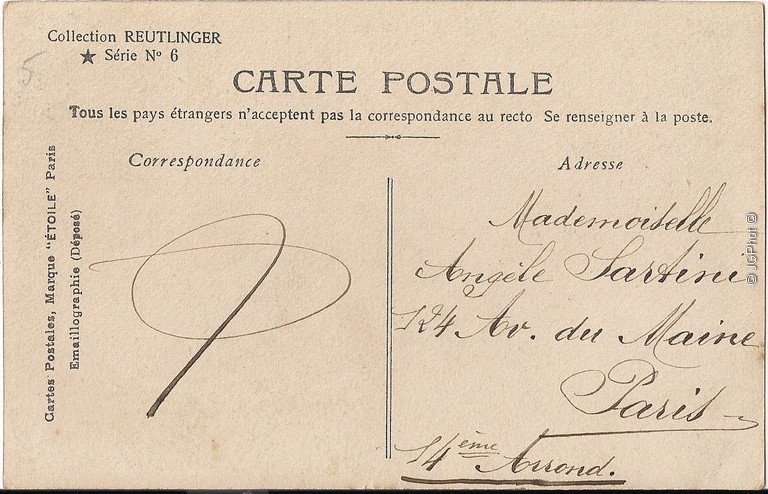 Collection REUTLINGER
★ Série Nº 6
5
CARTE POSTALE
Tous les pays étrangers n'acceptent pas la correspondance au recto Se renseigner à la poste.
Correspondance
Adresse
Cartes Postales, Marque "ÉTOILE" Paris
Emaillographie (Déposé)
Mademoiselle
Angèle Sartini
124 Av. du Maine
Paris
14ème Arrond.
© JCPhot ©